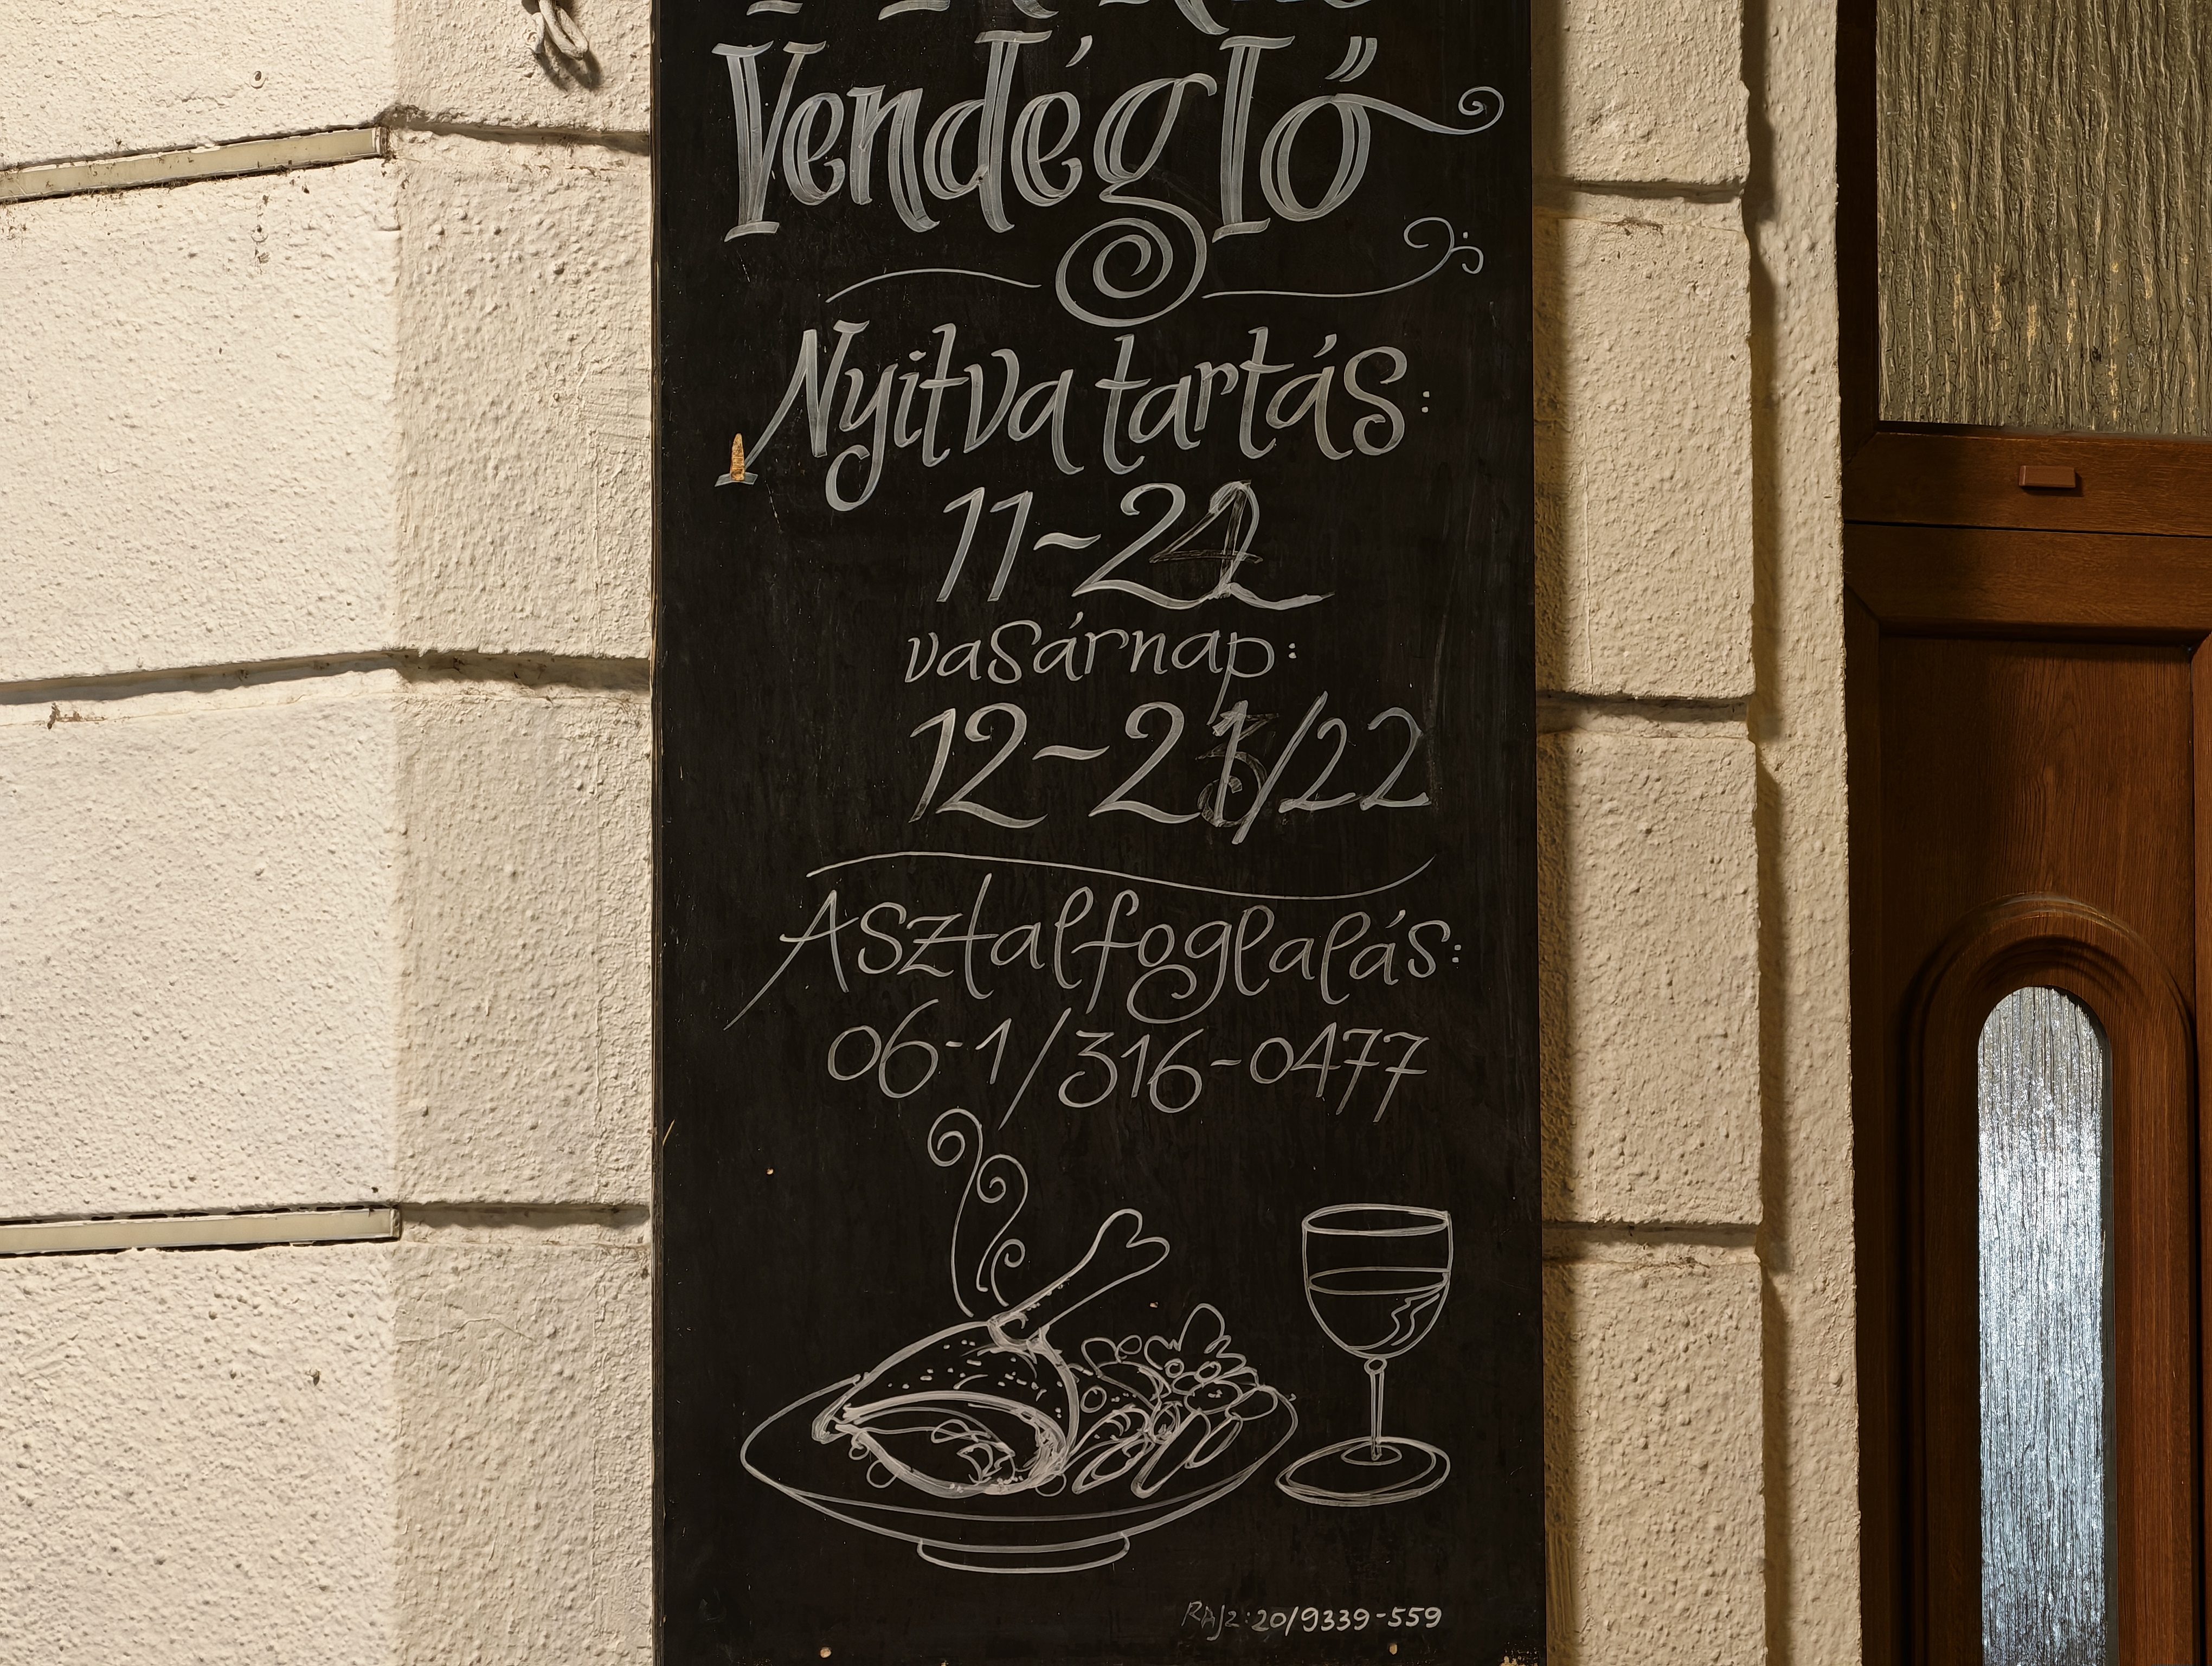 Vendéglő
Nyitva tartás:
11-22
vasárnap:
12-21/22
Asztalfoglalás:
06-1/316-0477
RAJZ: 20/9339-559